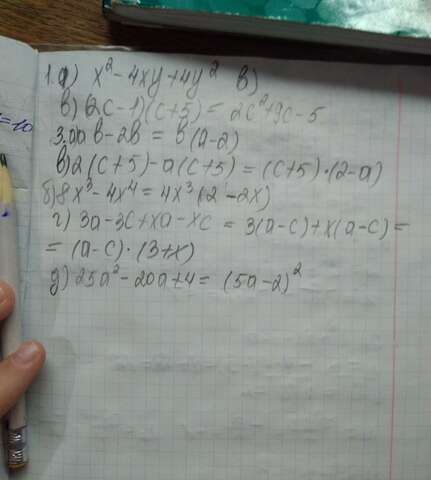 1.а) x² - 4xy + 4y² в)
в) (2c-1)(c+5) = 2c²+9c-5
3.а) ab-2b = b(a-2)
в) 2(c+5)-a(c+5) = (c+5)·(2-a)
б) 8x³-4x⁴= 4x³(2-2x)
г) 3a-3c+xa-xc = 3(a-c)+x(a-c)=
= (a-c)·(3+x)
д) 25a²-20a+4= (5a-2)²
=10